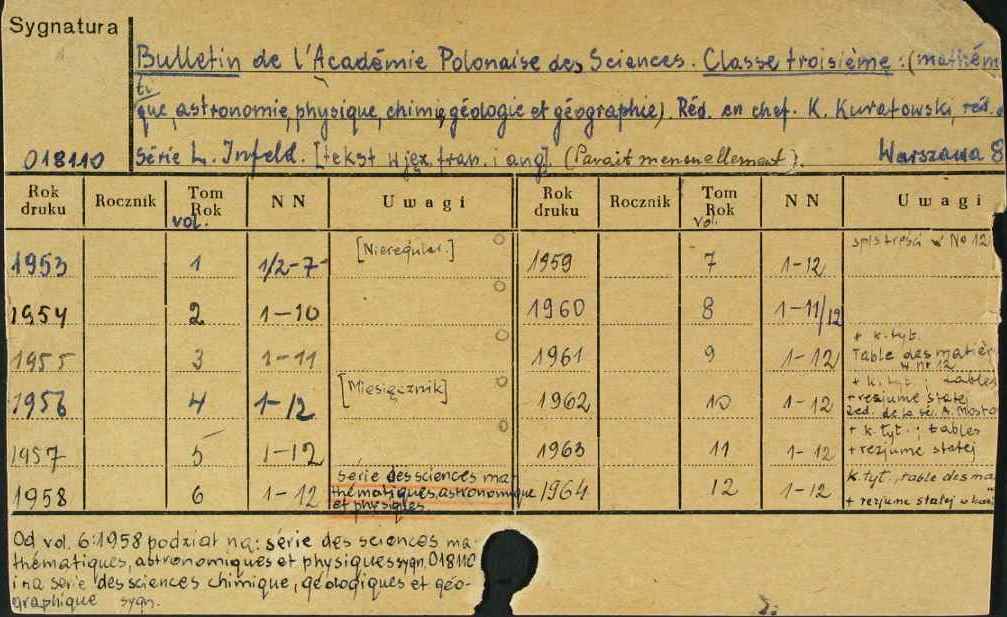 Sygnatura
Bulletin de l'Académie Polonaise des Sciences. Classe troisième: (mathém
ti
que, astronomie, physique, chimie, géologie et géographie). Réd. en chef. K. Kuratowski, réd.
018110 Série L. Infeld. [tekst w jęz. fran. i ang]. (Parait mensuellement). Warszawa 8
Rok druku Rocznik Tom Rok vol. NN Uwagi Rok druku Rocznik Tom Rok vol. NN Uwagi
1953 1 1/2-7 [Nieregular.] 1959 7 1-12 spis treści w No 12
1954 2 1-10 1960 8 1-11/12
1955 3 1-11 1961 9 1-12 + k. tyt. Table des matièr w nr 12
1956 4 1-12 [Miesięcznik] 1962 10 1-12 + k. tyt.; tables + rezjume statej Red. de la sér. A. Mosto
1957 5 1-12 1963 11 1-12 + k. tyt.; tables + rezjume statej
1958 6 1-12 série des sciences ma- thématiques, astronomique et physiqes 1964 12 1-12 k. tyt., table des ma + rezjume statej w
Od vol. 6:1958 podział na: série des sciences ma-
thématiques, astronomiques et physiques sygn. 018110
i na série des sciences chimique, géologiques et géo-
graphique sygn.